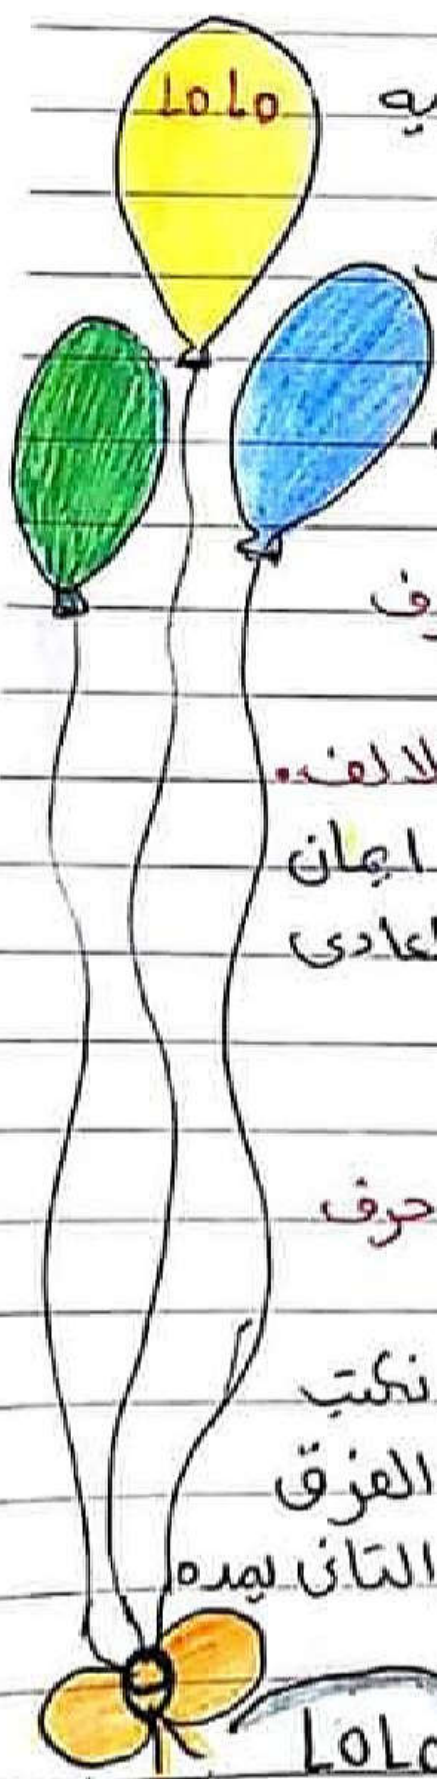 LoLo
يه
رف
لالف.
ايمان
لعادى
حرف
نكتب
الفرق
التانى يمده
LoLo